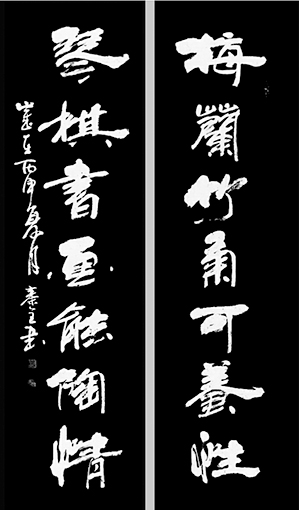 梅蘭竹菊可養性
琴棋書畫能陶情
歲在丙申夏月